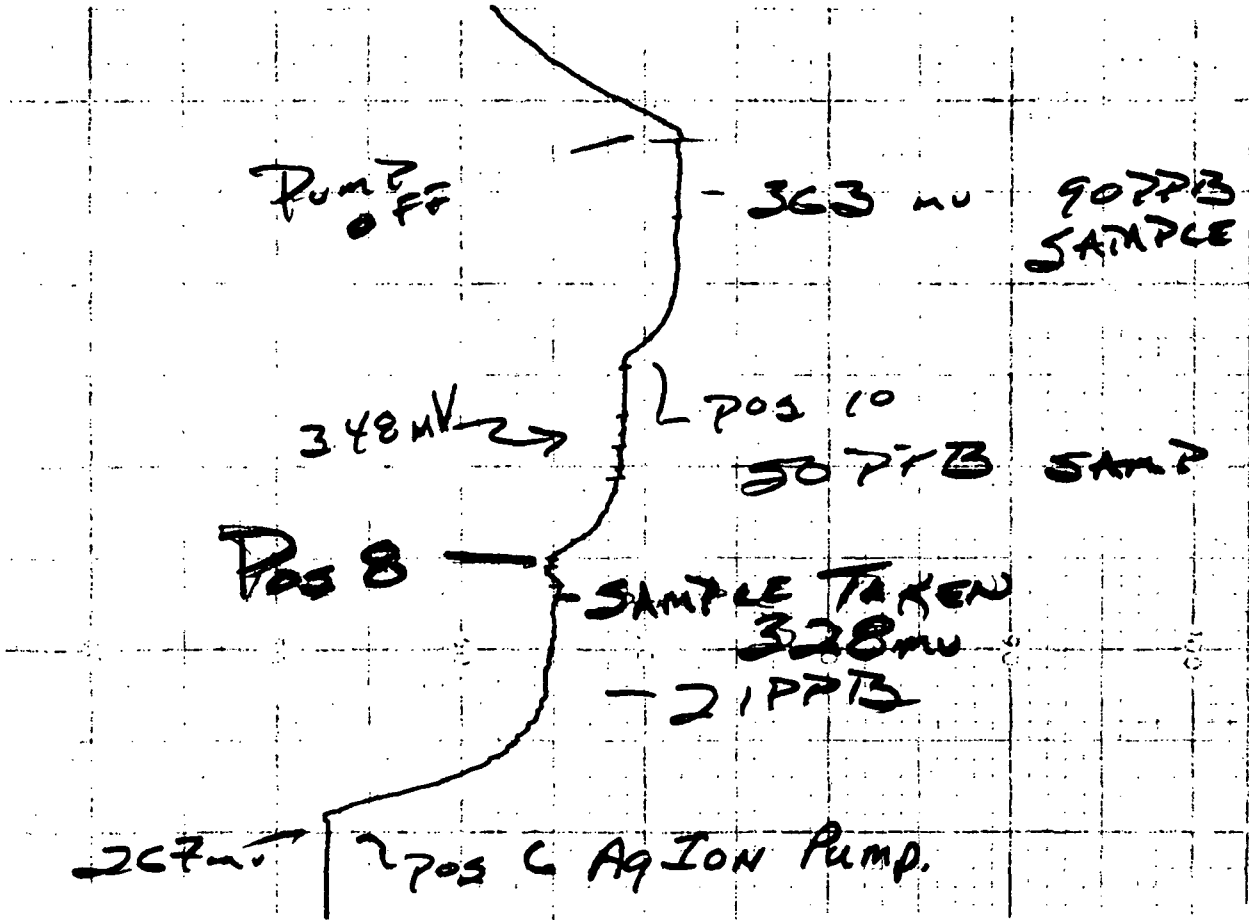 PUMP OFF
- 363 mv 90 PPB
SAMPLE
348 mV
POS 10
50 PPB SAMP
Pos 8
- SAMPLE TAKEN
328 mv
- 21 PPB
267 mv
POS 6 Ag ION PUMP.